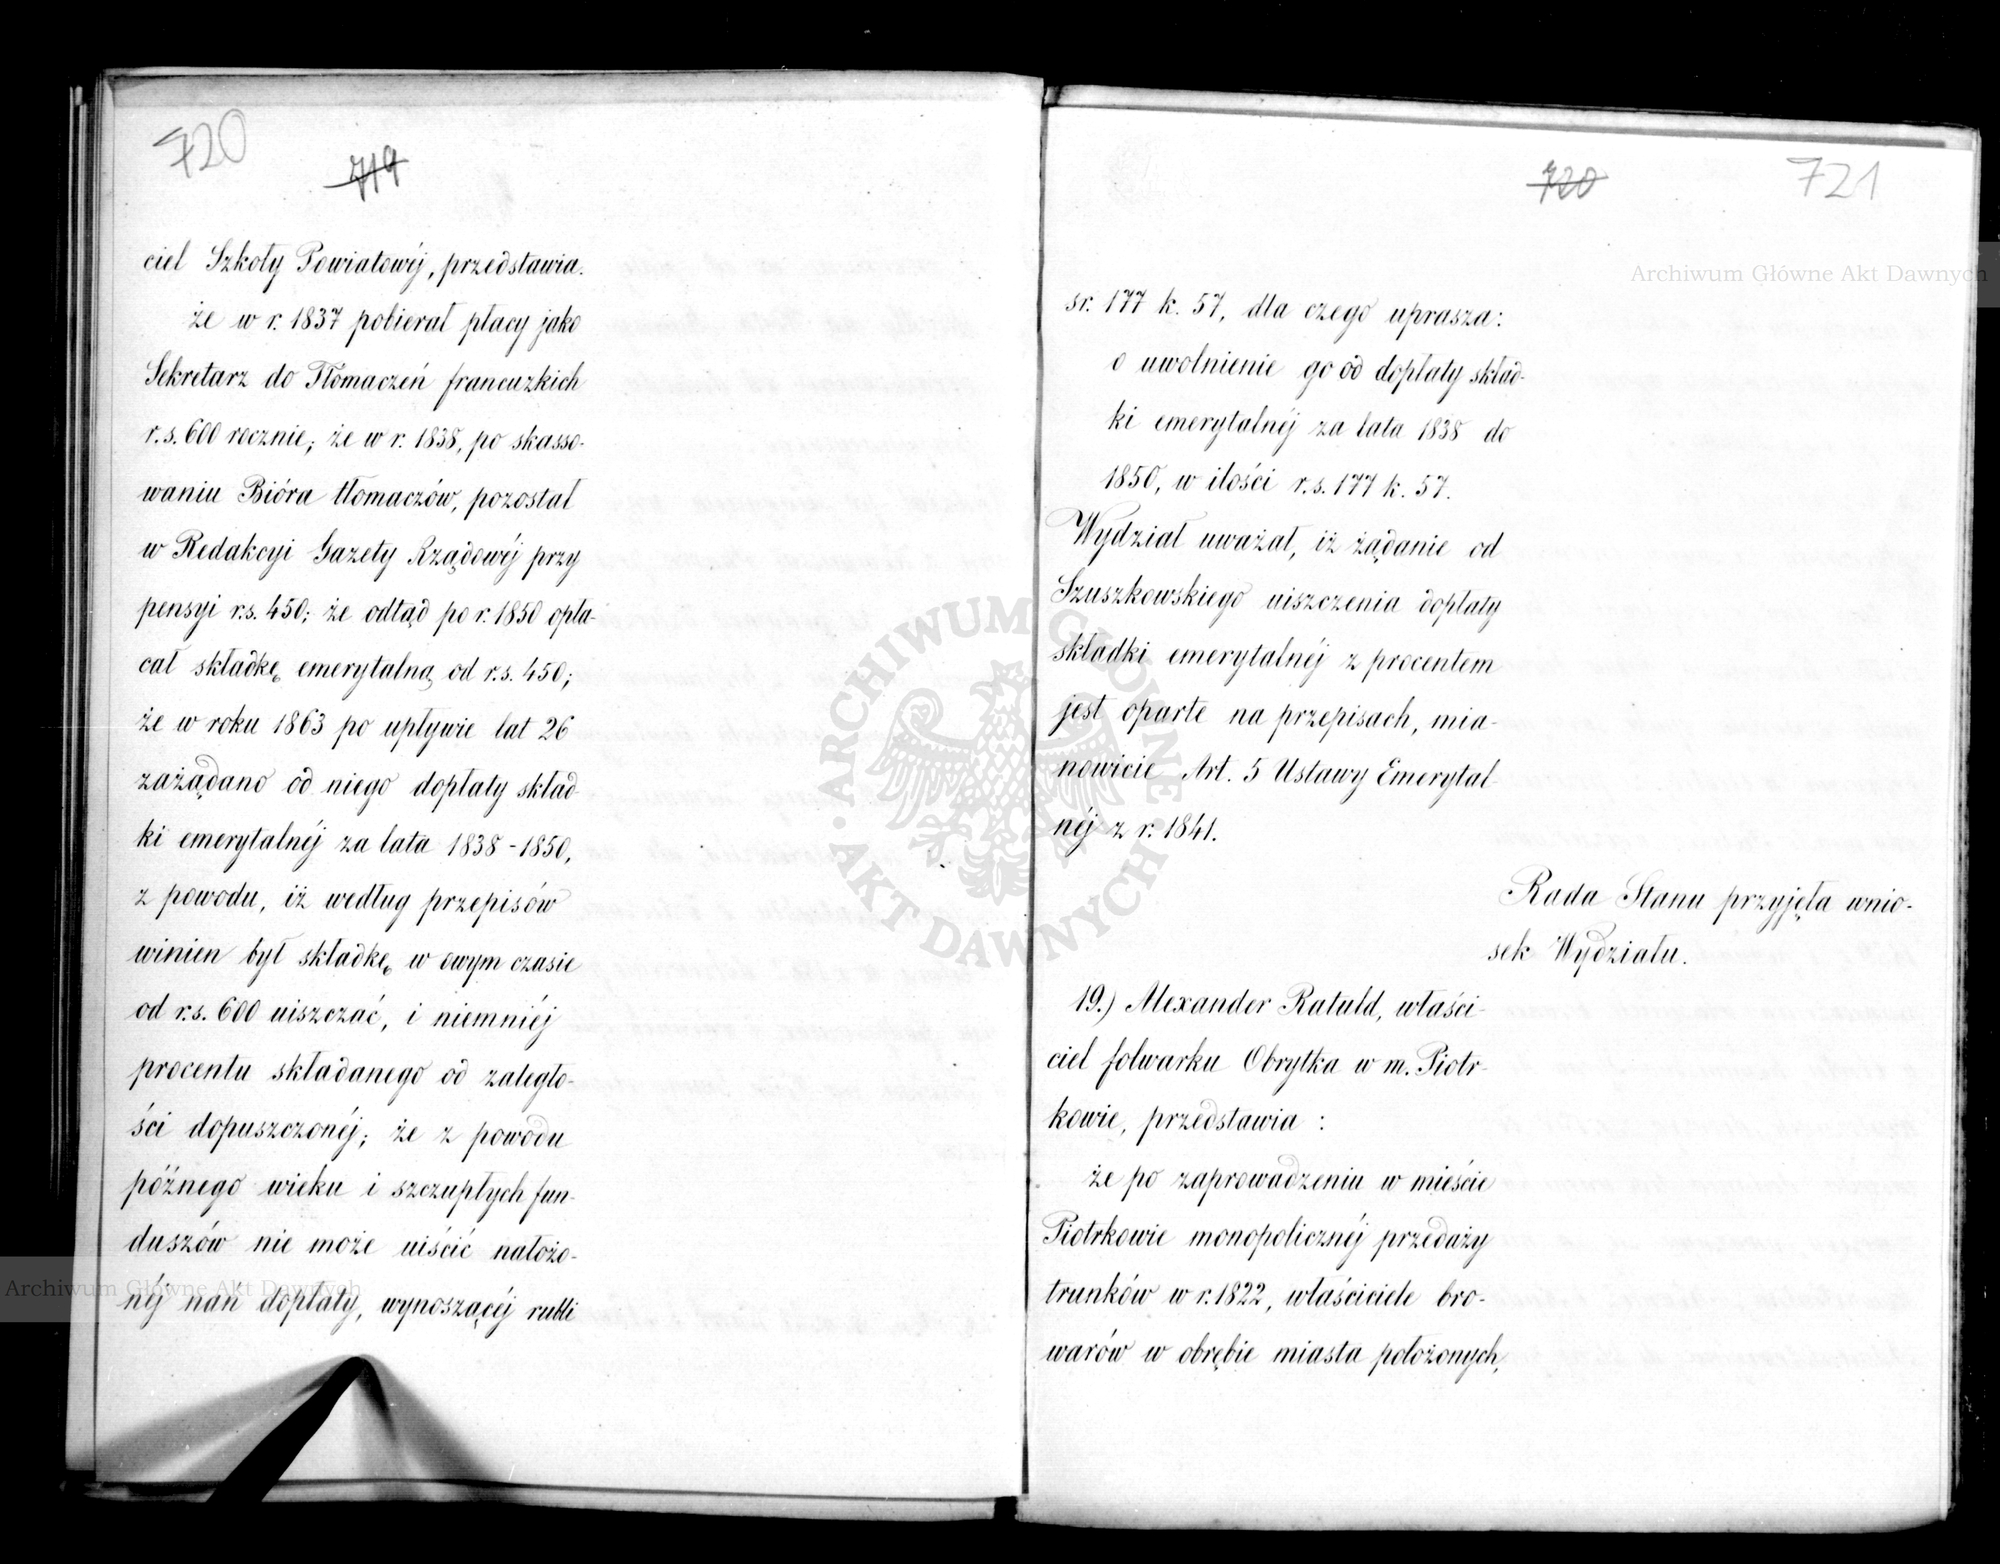 720
719
ciel Szkoły Powiatowéj, przedstawia.
że w r. 1837 pobierał płacy jako
Sekretarz do Tłomaczeń francuzkich
r.s. 600 rocznie; że w r. 1838, po skasso-
waniu Bióra tłomaczów, pozostał
w Redakcyi Gazety Rządowéj przy
pensyi r.s. 450; że odtąd po r. 1850 opła-
cał składkę emerytalną od r.s. 450;
że w roku 1863 po upływie lat 26
zażądano od niego dopłaty skład-
ki emerytalnéj za lata 1838-1850,
z powodu, iż według przepisów
winien był składkę w owym czasie
od r.s. 600 uiszczać, i niemniéj
procentu składanego od zaległo-
ści dopuszczonéj; że z powodu
późnego wieku i szczupłych fun-
duszów nie może uiścić nałożo-
néj nań dopłaty, wynoszącéj rubli
720
721
sr. 177 k. 57, dla czego uprasza:
o uwolnienie go od dopłaty skład-
ki emerytalnéj za lata 1838 do
1850, w ilości r.s. 177 k. 57.
Wydział uważał, iż żądanie od
Szuszkowskiego uiszczenia dopłaty
składki emerytalnéj z procentem
jest oparte na przepisach, mia-
nowicie Art. 5 Ustawy Emerytal-
néj z r. 1841.
Rada Stanu przyjęła wnio-
sek Wydziału.
19.) Alexander Ratuld, właści-
ciel folwarku Obrytka w m. Piotr-
kowie, przedstawia :
że po zaprowadzeniu w mieście
Piotrkowie monopolicznéj przedaży
trunków w r. 1822, właściciele bro-
warów w obrębie miasta położonych,
Archiwum Główne Akt Dawnych
Archiwum Główne Akt Dawnych
· ARCHIWUM GŁÓWNE · AKT DAWNYCH ·